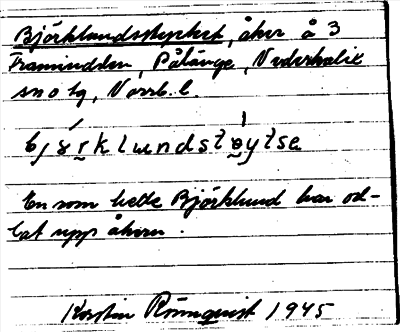 Björklundsstycket, åker å 3
Framudden, Pålänge, Nederkalix
sn o tg, Norrb. l.
björklundst ytse
En som hette Björklund har od-
lat upp åkern.
Kerstin Rönnquist 1945